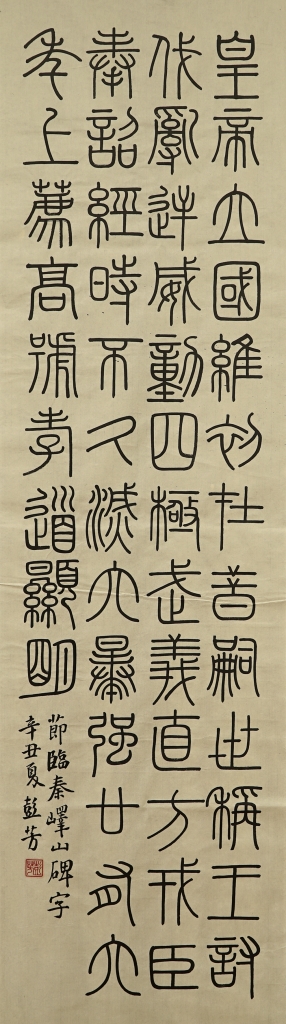 皇帝立國維初在昔嗣世稱王討
伐亂逆威動四極武義直方戎臣
奉詔經時不久滅六暴强廿有六
年上薦高號孝道顯明
節臨秦嶧山碑字
辛丑夏 彭芳